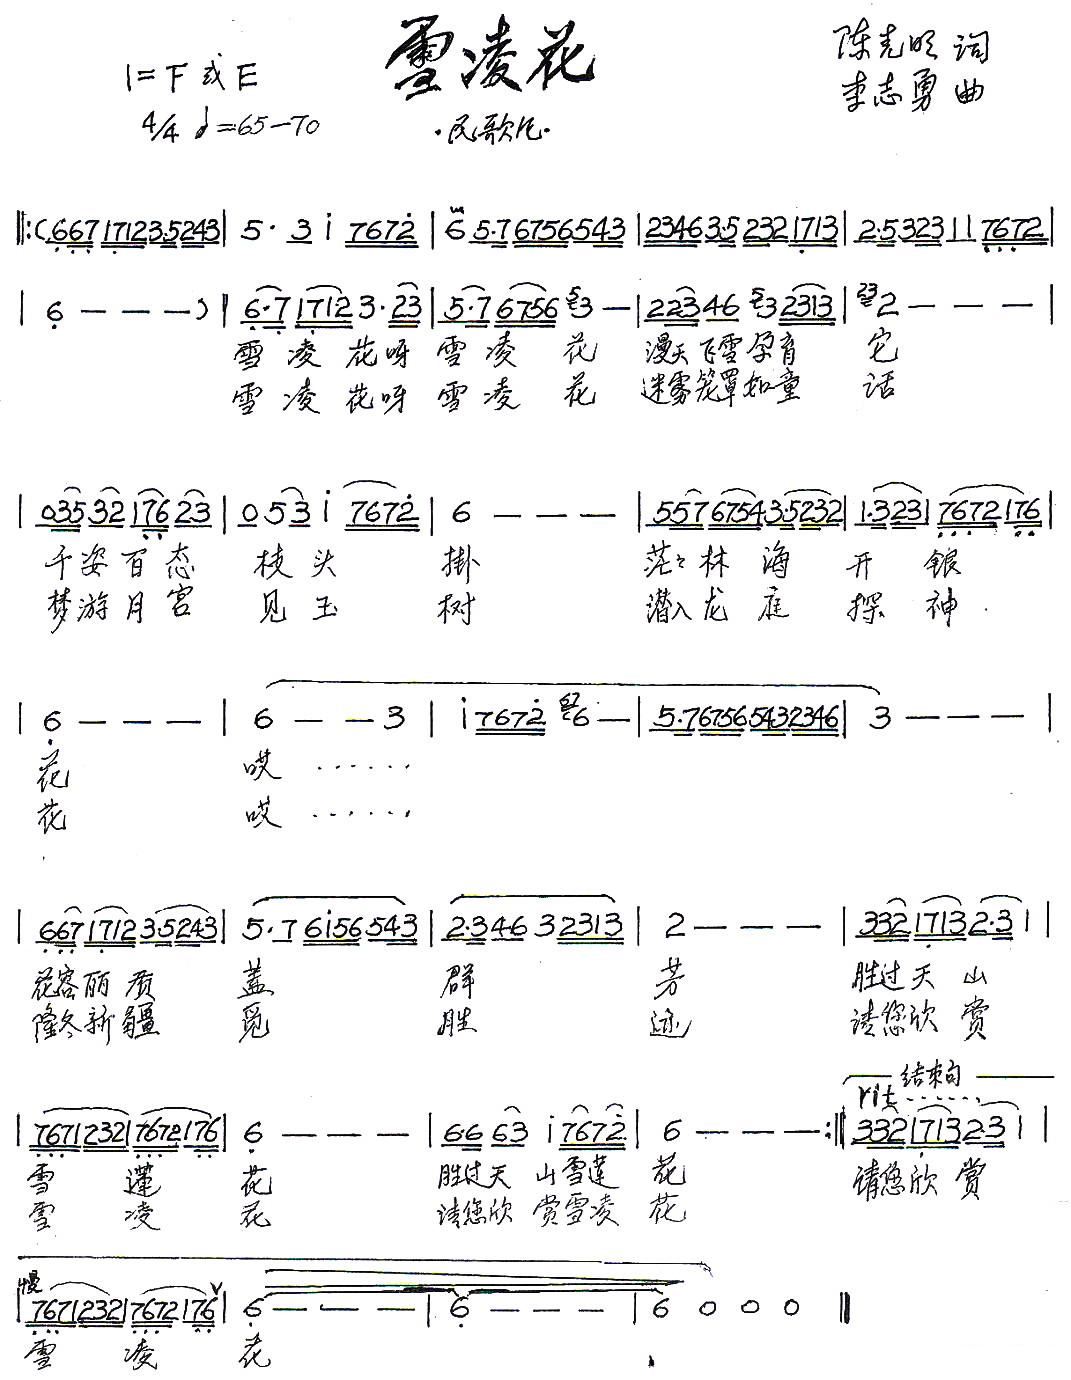 雪凌花
陈克明 词
1=F 或 E
李志勇 曲
4/4 ♩=65-70
·民歌风·
‖:(6671712 3·5243 | 5· 3 i 7672 | 6 5·7 6756543 | 23463·5 232 1713 | 2·5 323 11 7672 |
| 6 - - - ) | 6·7 1712 3·23 | 5·7 6756 53 - | 223 46 53 2313 | 232 - - - |
雪凌花呀 雪凌花 漫天飞雪孕育它
雪凌花呀 雪凌花 迷雾笼罩如童话
| 035 32 176 23 | 053 i 7672 | 6 - - - | 557 6754 3·5232 | 1·323 7672 176 |
千姿百态 枝头 掛 茫々林海 开银
梦游月宫 见玉 树 潜入龙庭 探神
| 6 - - - | 6 - - 3 | i 7672 676 - | 5·76756 5432346 | 3 - - - |
花 哎······
花 哎······
| 667 1712 3·5243 | 5·7 6i56 543 | 2·3 46 3 2313 | 2 - - - | 332 1713 2·3 1 |
花容丽质 盖 群 芳 胜过天山
隆冬新疆 觅 胜 迹 请您欣赏
结束句
rit······
| 7671232 7672 176 | 6 - - - | 66 63 i 7672 | 6 - - - :‖ 332 1713 2·3 1 |
雪莲 花 胜过天山雪莲 花 请您欣赏
雪凌 花 请您欣赏雪凌 花
慢
| 7671232 7672 176 | 6 - - - | 6 - - - | 6 0 0 0 ‖
雪凌 花